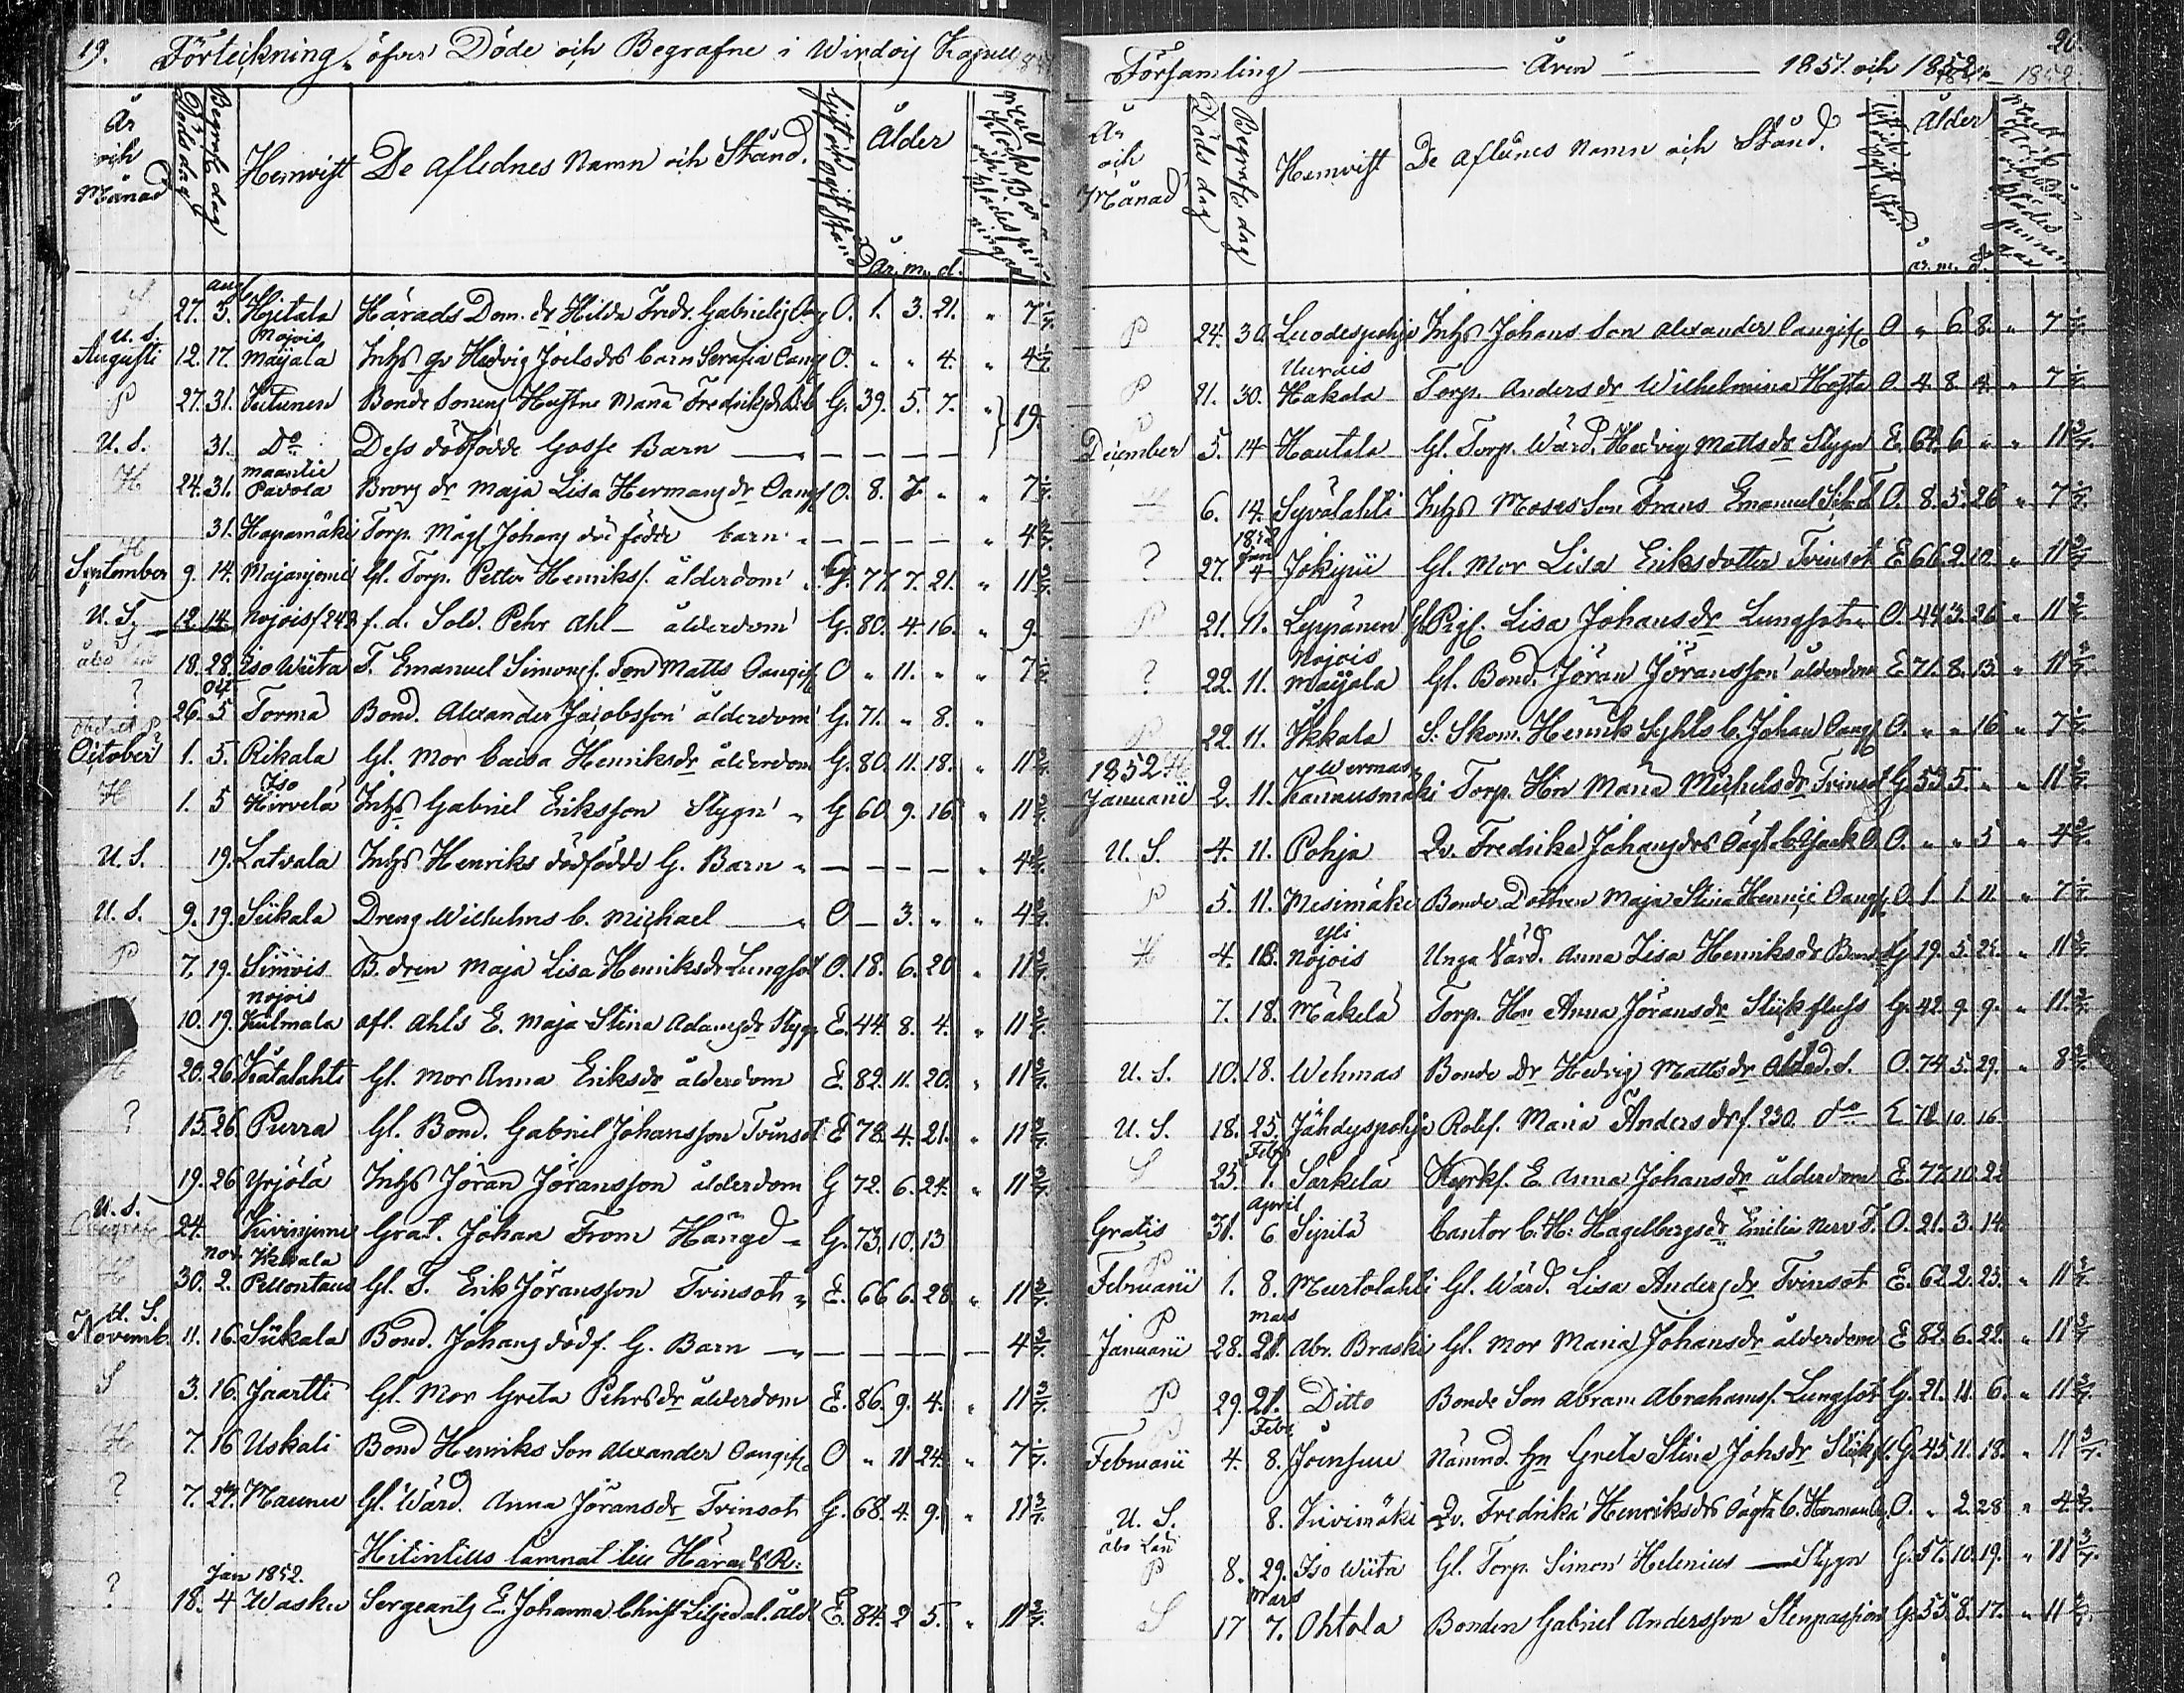 19. Förteckning öfver Döde och Begrafne i Wirdois Kapell
År och Månad Döds dag Begrafn. dag Hemvist De Aflednes Namn och Stånd. Gift och Ogift Stånd Ålder År. m. d.
Aug.
S 27. 3. Hjitala Härads Dom. dr Hilda Fredr. O. 1. 3. 21. " 7 1/7.
U. S. Nojois
Augusti 12. 17. Maijala Inhs qv Hedvig Joelsdrs barn Serafia O. " " 4. " 4 2/7
P 27. 31. Bonde Sonens Hustru Maria G. 39. 5. 7. " 19.
U. S. 31. Do Dess dödfödde Gosse Barn — — — — —
H 24. 31. Pavola dr Maja Lisa Hermansdr O. 8. 7. " " 7 1/7.
31. Hapamäki Torp. Måg Johans död födde barn " — — — — " 4 2/7.
H
September 9. 14. Majanjemi Gl. Torp. Petter Henrikss. ålderdom G. 77. 7. 21. " 11 3/7.
U. S. 12. 14. Nojois f. d. Sold. Pehr Ahl — ålderdom G. 80. 4. 16. " 9.
18. 28. Iso Wiita T. Emanuel Simonss. Son Matts O " 11. " " 7 1/7.
? Oct
26. 5 Torma Bond. Alexander Jacobsson ålderdom G. 71. " 8. "
October 1. 5. Rikala Gl. Mor Caisa Henriksdr ålderdom G. 80. 11. 18. " 11 3/7.
Iso
H 1. 5 Hirvelä Inhs Gabriel Eriksson Stygn " G 60. 9. 16. " 11 3/7.
U. S. 19. Latvala Inhs Henriks dödfödde G. Barn " — — — — " 4 2/7.
U. S. 9. 19. Siikala Dreng Wilhelms b. Michael — " O — 3. " " 4 2/7.
P 7. 19. Simois B. dren Maja Lisa Henriksdr Lungsot O. 18. 6. 20 " 11 3/7.
Nojois
10. 19. Kulmala afl. Ahls E. Maja Stina Adamsdr Stygn E. 44. 8. 4. " 11 3/7.
H 20. 26. Kätalahti Gl. Mor Anna Eriksdr ålderdom E. 82. 11. 20. " 11 3/7.
? 15. 26. Purra Gl. Bond. Gabriel Johansson Tvinsot E 78. 4. 21. " 11 3/7.
19. 26 Yrjölä Inhs Jöran Jöransson ålderdom G 72. 6. 24. " 11 3/7.
U. S.
24. Kivinjemi Grat. Johan From Hängd " G. 73. 10. 13
Nov.
H 30. 2. Gl. T. Erik Jöransson Tvinsot " E. 66 6. 28 " 11 3/7.
U. S.
Novemb. 11. 16. Siikala Bond. Johans dödf. G. Barn — " — — — — 4 2/7.
S 3. 16. Jaartti Gl. Mor Greta Pehrsdr ålderdom E. 86. 9. 4. " 11 3/7.
H 7. 16 Uskali Bond Henriks Son Alexander O " 11 24. " 7 1/7.
? 7. 27. Maunu Gl. Wärd. Anna Jöransdr Tvinsot G. 68. 4. 9. " 11 3/7.
Hitintills lämnat till Härads R:
Jan 1852.
? 18. 4 Wasku Sergeants E. Johanna Christ Liljedal. Åld. E. 84. 2 5. " 11 3/7.
Församling — Åren — 1851. och 1852. 1852. 20.
År och Månad Döds dag Begrafn. dag Hemvist De Aflednes Namn och Stånd. Ålder År. m. d.
P 24. 30. Luodespohja Inhs Johans Son Alexander O " 6 8. " 7 1/7.
P 21. 30. Hakola Torp. Anders dr Wilhelmina Hosta O. 4. 8. 4. " 7 1/7.
December 5. 14 Hautala Gl. Torp. Wärd. Hedvig Mattsdr Stygn E. 64. 6 " " 11 3/7.
H 6. 14. Syvälahti Inhs Moses Son Frans Emanuel O. 8. 5. 26 " 7 1/7.
1852 Jan
? 27. 4 Jokipii Gl. Mor Lisa Eriksdotter Tvinsot E 66. 2. 10. " 11 3/7.
P 21. 11. Leppänen Gl. Pig. Lisa Johansdr Lungsot " O. 44. 3. 26 " 11 3/7.
Nojois
? 22. 11. Maijala Gl. Bond. Jöran Jöransson ålderdom E 71. 8. 13. " 11 3/7.
P 22. 11. Ikkala S. Skom. Henrik b. Johan O. " " 16 " 7 1/7.
1852 H Wermas
Januarii 2. 11. Kannusmäki Torp. Hu Maria Michelsdr Tvinsot G. 53. 5. " " 11 3/7.
U. S. 4. 11. Pohja Qv. Fredrika Johansdrs O. " " 5 " 4 2/7.
P 5. 11. Mesimäki Bonde Dottren Maja Stina O. 1. 1. 11. " 7 1/7.
Yli
H 4. 18. Nojois Unga Värd. Anna Lisa Henriksdr G 19. 5. 25. " 11 3/7.
7. 18. Mäkelä Torp. Hu Anna Jöransdr G. 42. 9. 9. " 11. 3/7.
U. S. 10. 18. Wehmas Bonde Dr Hedvig Mattsdr O. 74. 5. 29. " 8 2/7.
U. S. 18. 25. Jähdyspohja Maria Andersdr f. 230. do E 72. 10. 16.
Feb.
S 25. 1. Särkelä Kyrks. E. Anna Johansdr ålderdom E. 77. 10. 22
April
Gratis 31. 6 Sipilä Cantor C. H. Hagelbergs dr Emilia Nerv F. O. 21. 3. 14.
P
Februarii 1. 8. Murtolahti Gl. Wärd. Lisa Andersdr Tvinsot E. 62. 2. 23. " 11 3/7.
P Mars
Januarii 28. 21. Abr. Braski Gl. Mor Maria Johansdr ålderdom E 82. 6. 22. " 11 3/7.
P 29. 21. Ditto Bonde Son Abram Abrahamss. Lungsot G. 21. 11. 6. " 11 3/7.
Feb.
Februarii 4. 8. Joensuu Nämnd. Hn Greta Stina Johsdr G. 45. 11. 18. " 11 3/7.
U. S. 8. Kivimäki Qv. Fredrika Henriksdrs b. Herman O. " 2. 28 " 4 2/7.
Åbo Län
P 8. 29. Iso Wiita Gl. Torp. Simon Helenius — Stygn G. 57. 10. 19. " 11 3/7.
Mars
S 17 7. Ohtola Bonden Gabriel Andersson Stenpassion G. 55. 8. 17. " 11 3/7.